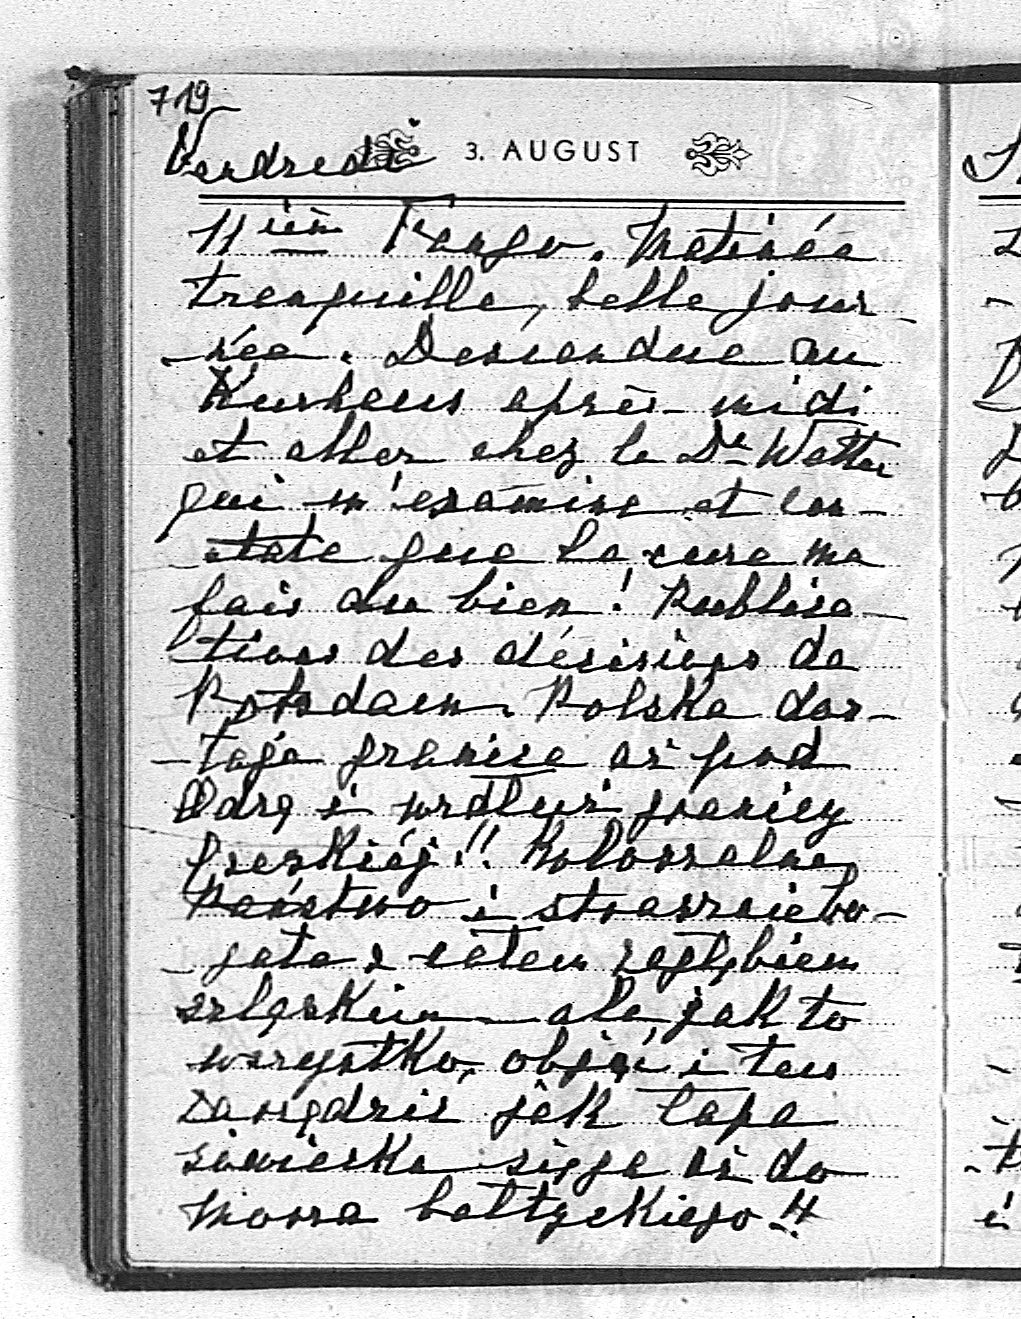 719
Vendredi 3. AUGUST
11ièm Fango. Matinée
tranquille, belle jour-
-née. Descendue au
Kurhaus après-midi
et aller chez le Dr Watter
qui m'examine et con-
-state que la cure ma
fais du bien! Publica-
tions des décisions de
Potsdam. Polska dos-
-taje granice aż pod
Odrę i wzdłuż granicy
Czeskiéj!! Kolossalne
Państwo i straszniebo-
-gate z całem zagłębiem
szląskiem - ale jak to
wszystko, objąć i tem
zarządzić jak łapa
sowiecka sięga aż do
morza baltyckiego!!